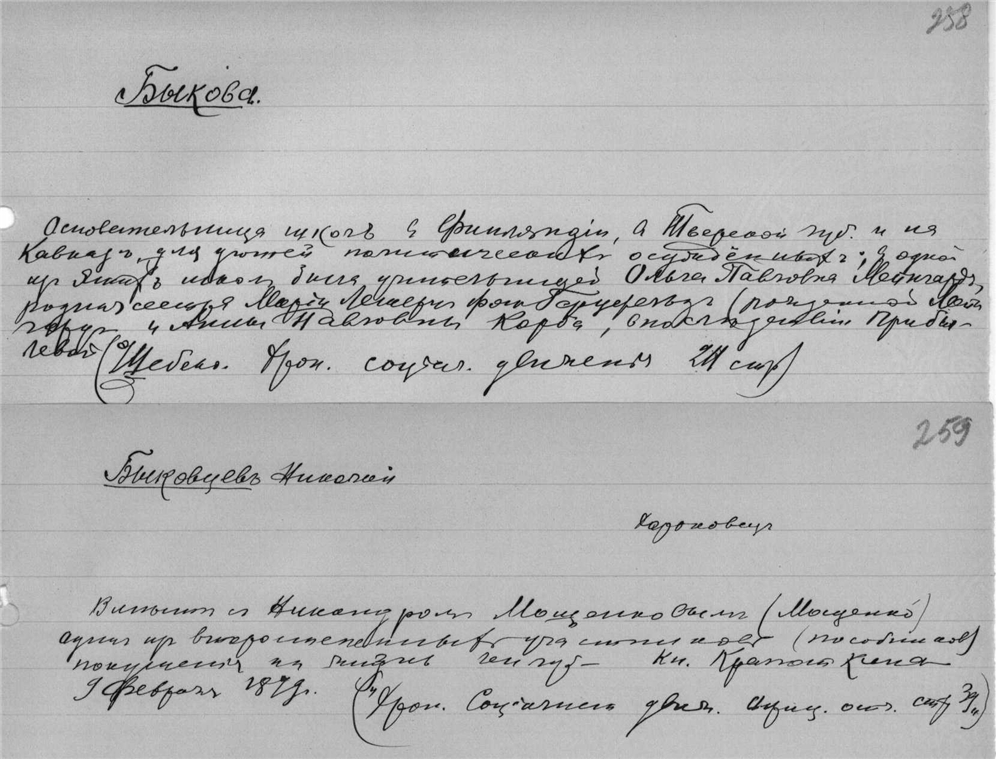 258
Быкова.
Основательница школъ в Финляндіи, в Тверской губ. и на
Кавказѣ, для дѣтей политическихъ осужденныхъ; в одной
изъ этихъ школъ была учительницей Ольга Павловна Мейнгардъ,
родная сестра Маріи Лешернъ фон Герцфельдъ (рожденной Мейн
гардъ и Анны Павловны Корба, впослѣдствіи Прибы-
левой ("Шебеко. Хрон. соціал. движенія 211 стр)
259
Быковцевъ Николай
Харьковецъ
Вмѣстѣ с Никандромъ Мощенковымъ (Мощенко)
одинъ изъ второстепенныхъ участниковъ (пособников)
покушенія на жизнь ген губ- Кн. Крапоткина
9 Февраля 1879г.
("Хрон. Соціалист движ. Офиц. отч. стр